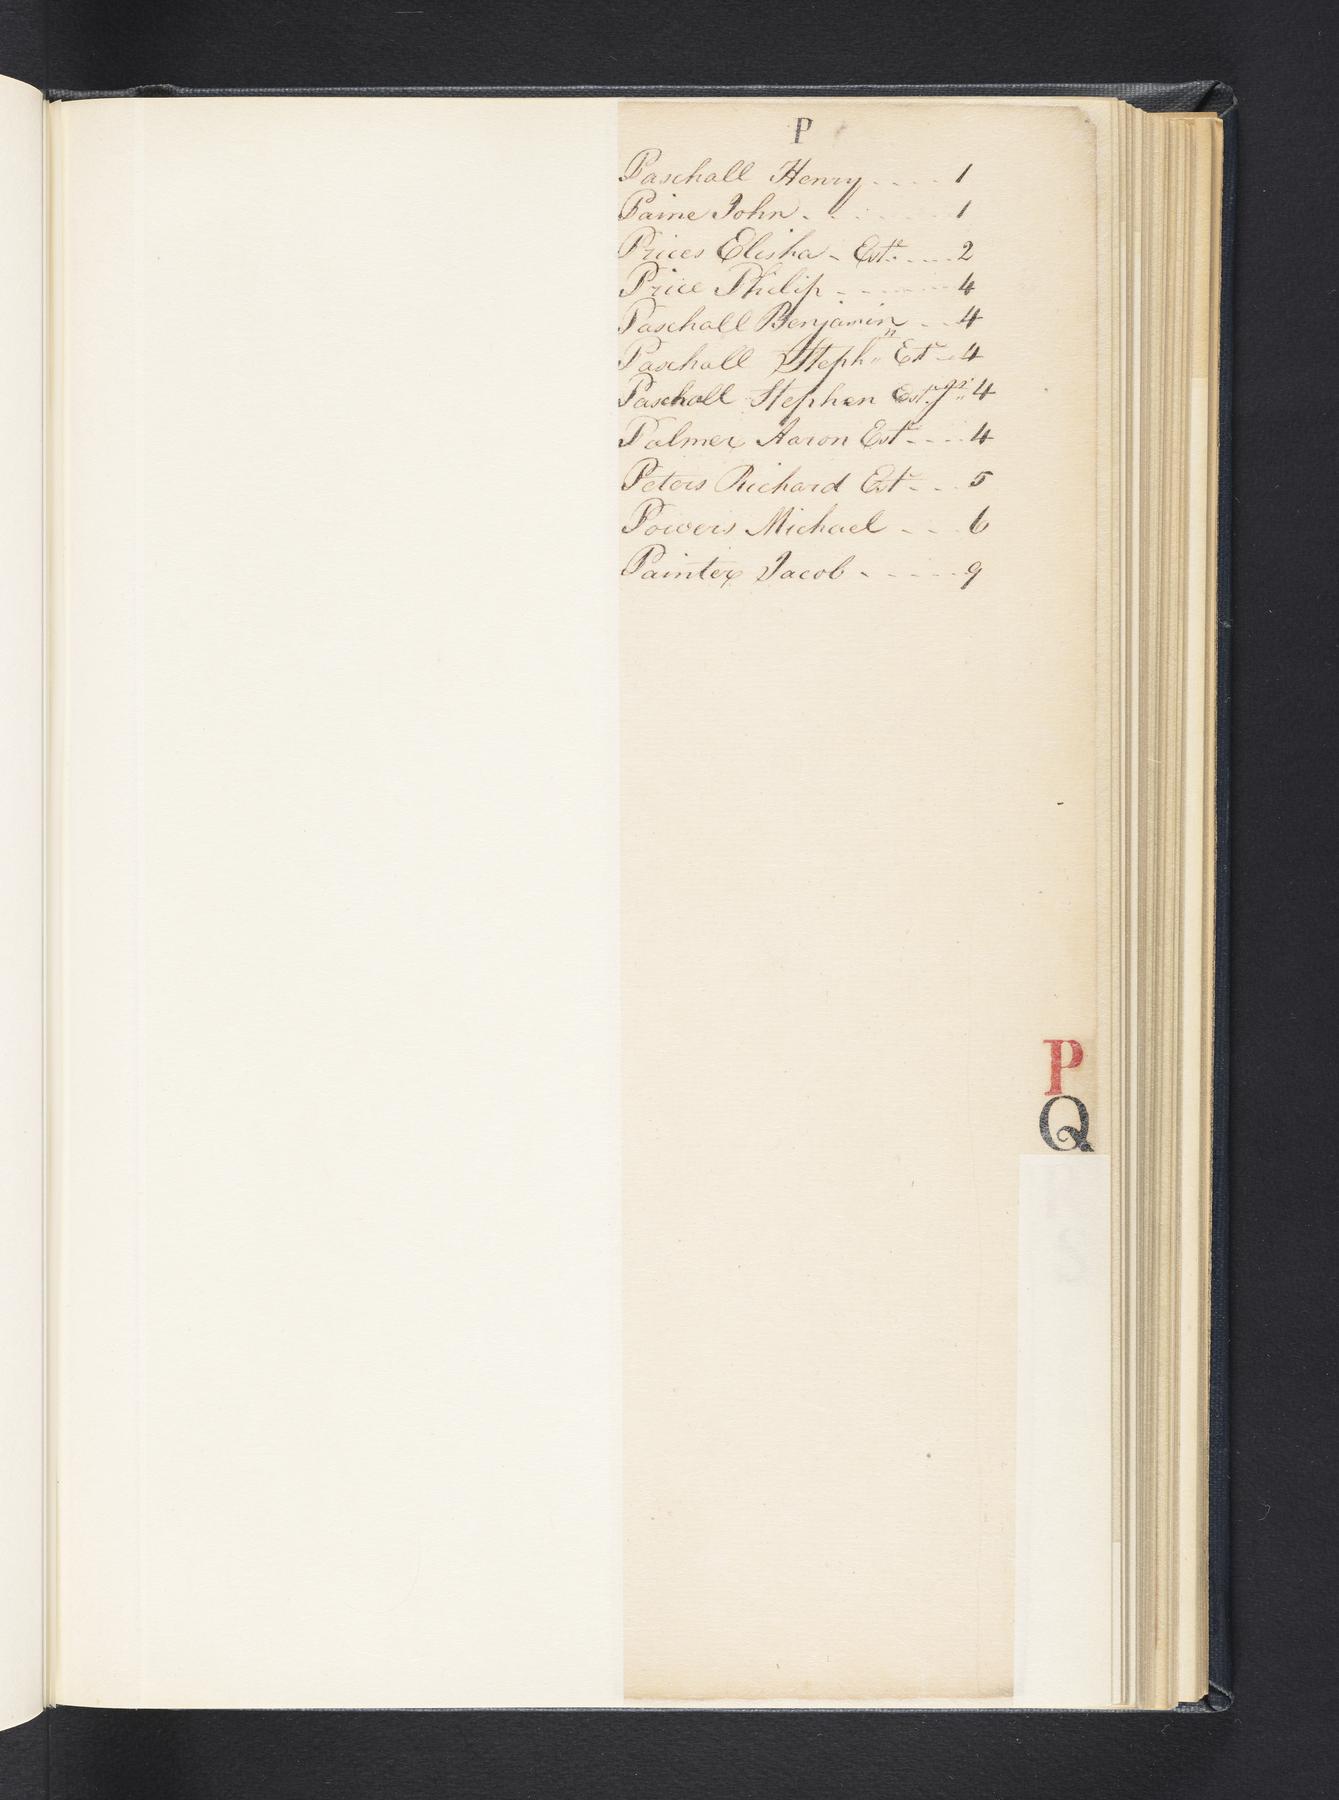 P
Paschall Henry .... 1
Paine John . . . . . 1
Prices Elisha - Estr. .... 2
Price Philip - - - - - 4
Paschall Benjamin - - 4
Paschall Stephn Estr - 4
Paschall Stephen Estr 4
Palmer Aaron Estr - - - - 4
Peters Richard Estr - - - 5
Powers Michael - - - 6
Painter Jacob - - - - - 9
P
Q